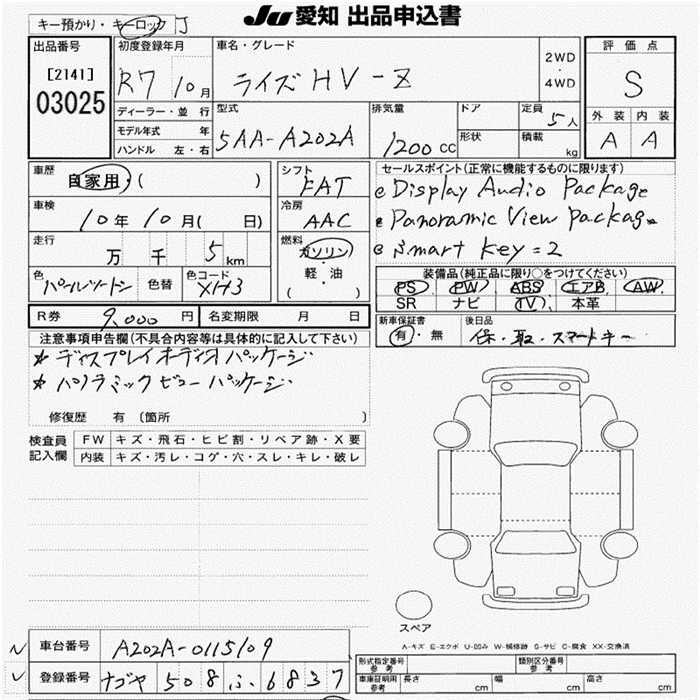 キー預かり・キーロック J
JU 愛知 出品申込書
出品番号
[2141]
03025
初度登録年月
R7 10月
ディーラー・並 行
モデル年式 年
ハンドル 左・右
車名・グレード
ライズHV-Z
2WD
・
4WD
型式
5AA-A202A
排気量
1200 CC
ドア
形状
定員
5人
積載
kg
評 価 点
S
外 装 内 装
A A
車歴
自家用 ( )
車検
10年 10月( 日)
走行
万 千 5 km
色
パールツートン
色替
色コード
XH3
シフト
FAT
冷房
AAC
燃料
ガソリン
・
軽・油
( )
セールスポイント(正常に機能するものに限ります)
Display Audio Package
Panoramic View Package
Smart Key=2
装備品(純正品に限り○をつけてください)
PS PW ABS エアB AW
SR ナビ TV 本革
R券 9,000 円 名変期限 月 日
新車保証書
有・無
後日品
保・取・スマートキー
注意事項申告欄(不具合内容等は具体的に記入して下さい)
* ディスプレイオーディオパッケージ
* パノラミックビューパッケージ
修復歴 有 〔箇所 〕
検査員
記入欄
FW キズ・飛石・ヒビ割・リペア跡・X要
内装 キズ・汚レ・コゲ・穴・スレ・キレ・破レ
スペア
A-キズ E-エクボ U-凹み W-補修跡 S-サビ C-腐食 XX-交換済
車台番号 A202A-0115109
登録番号 ナゴヤ 508 ふ 6837
形式指定番号
参考
類別区分番号
参考
車庫証明用
参考
長さ cm 幅 cm 高さ cm